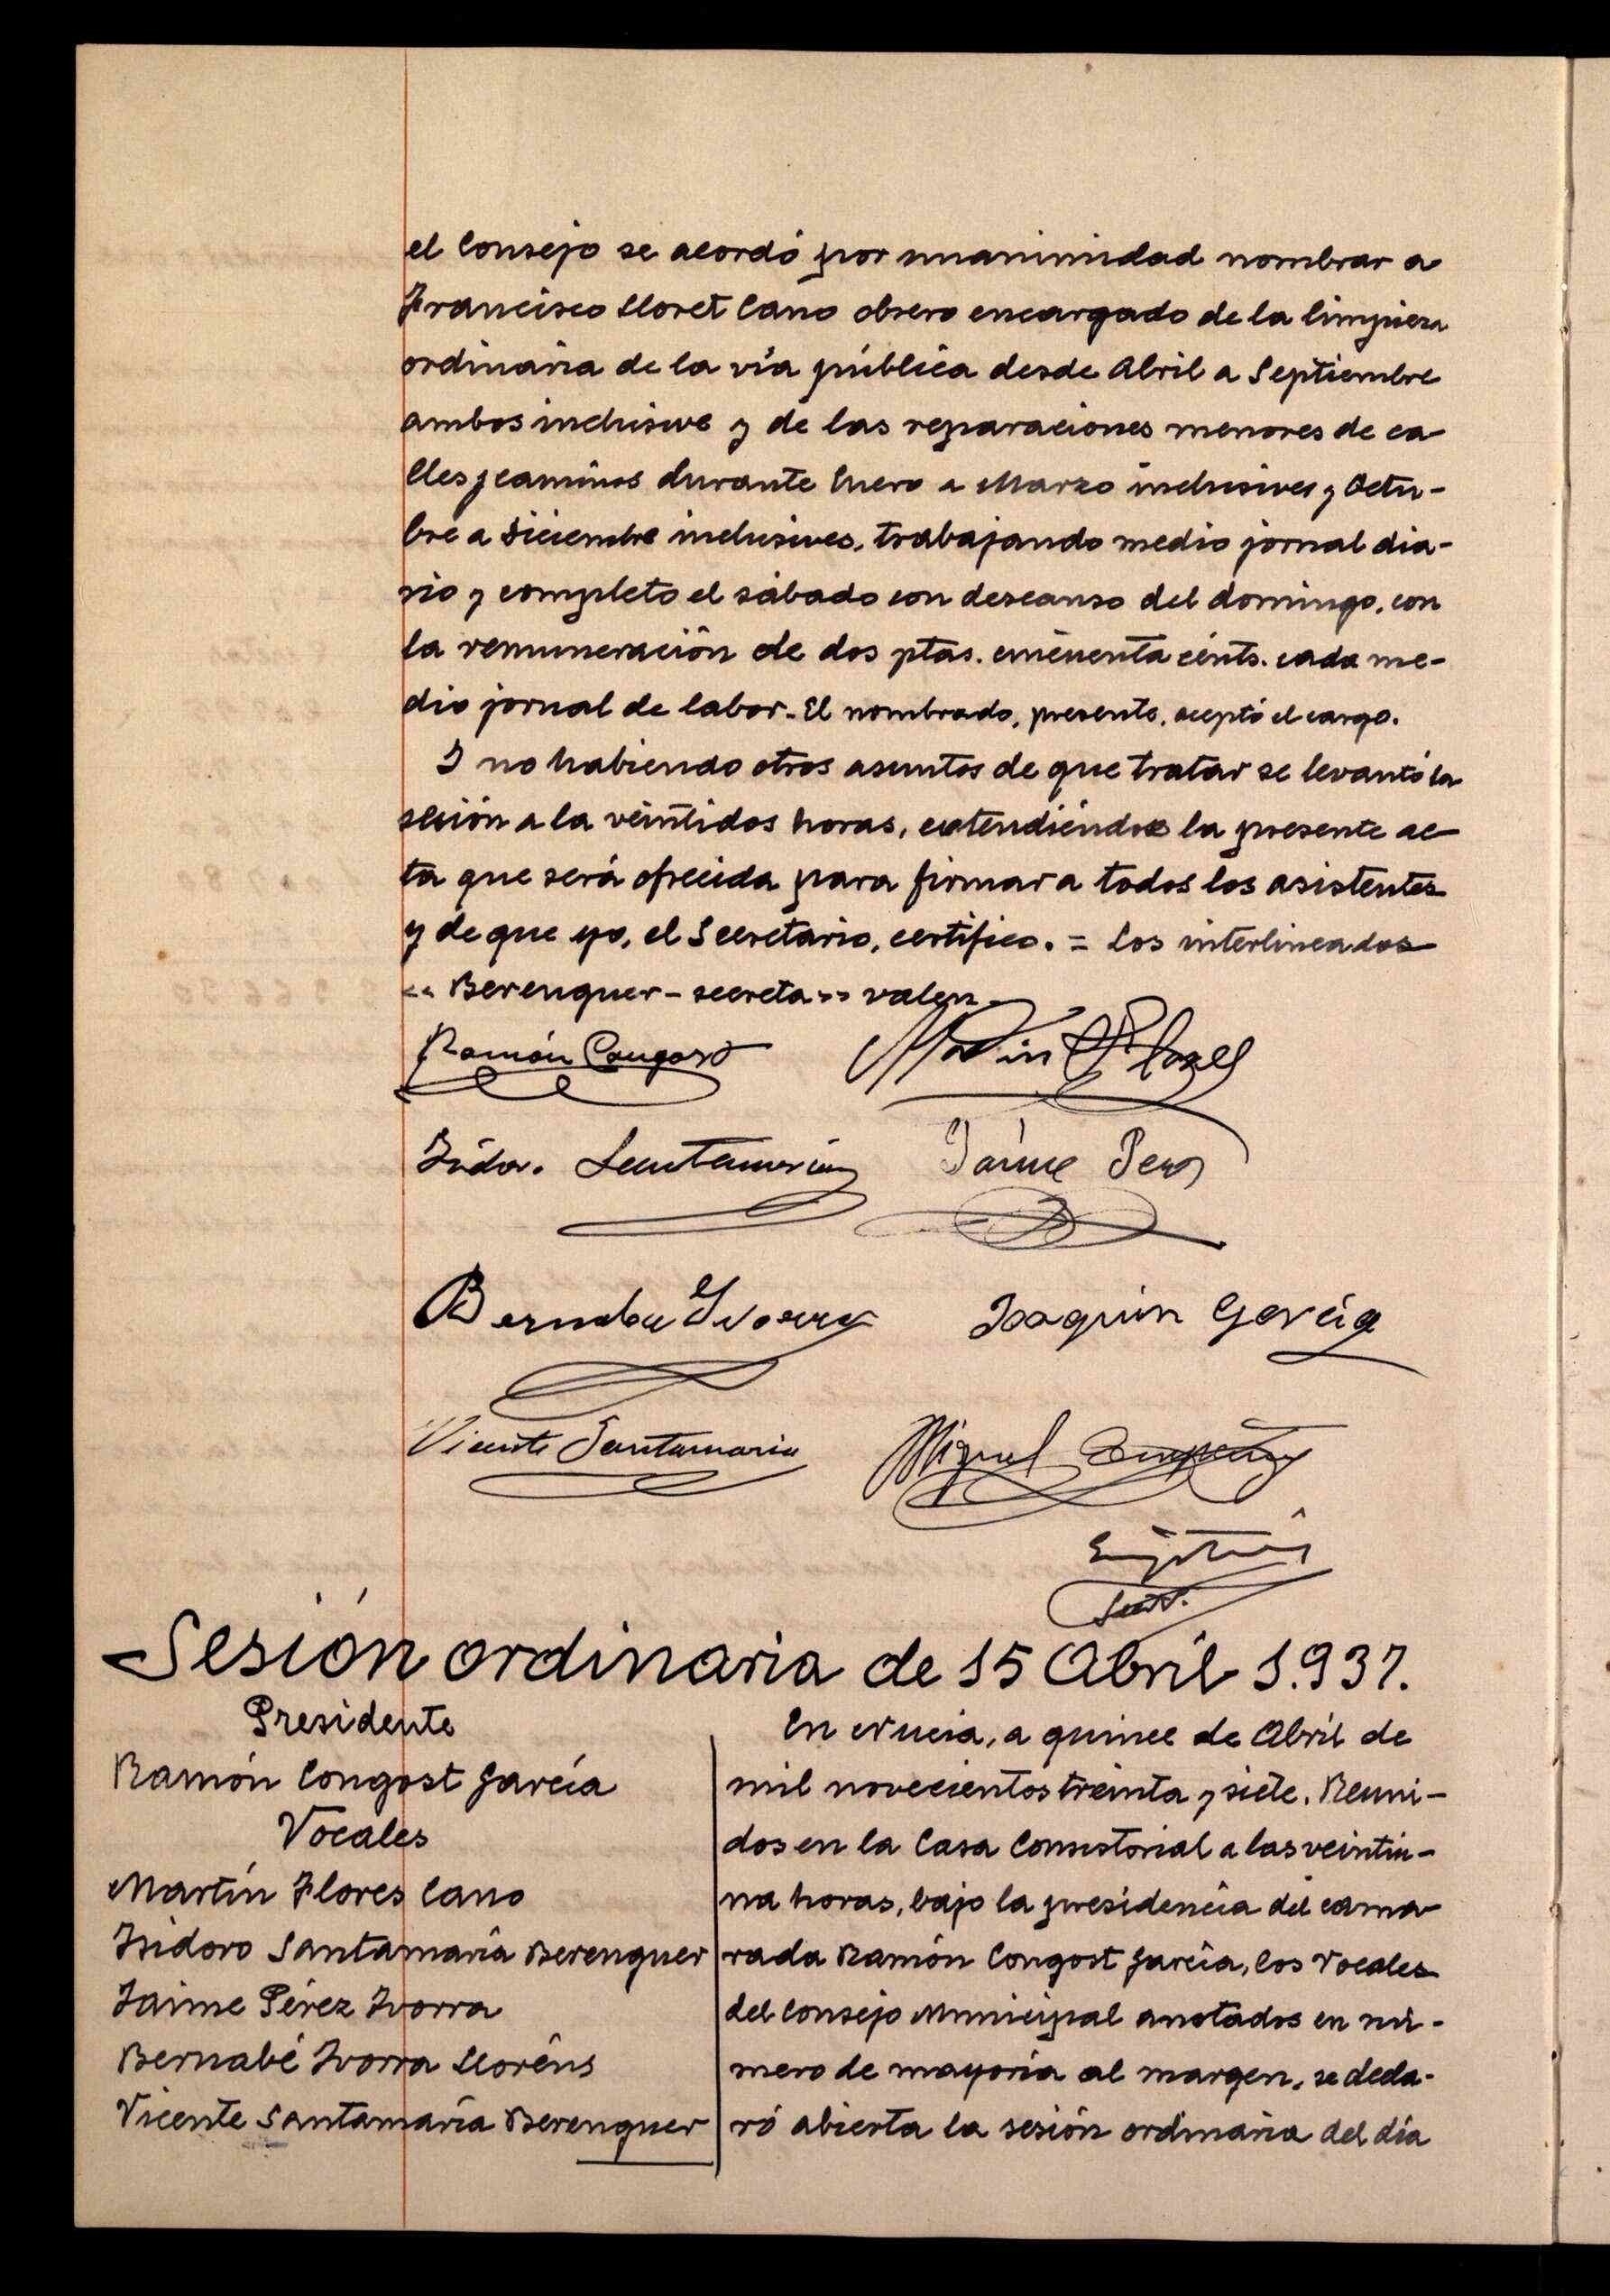 el Consejo se acordó por unanimidad nombrar a
Francisco Lloret Cano obrero encargado de la limpieza
ordinaria de la vía pública desde Abril a Septiembre
ambos inclusive y de las reparaciones menores de ca
lles y caminos durante Enero a Marzo inclusives y Octu-
bre a Diciembre inclusives, trabajando medio jornal dia-
rio y completo el sábado con descanso del domingo, con
la remuneración de dos ptas. cincuenta cénts. cada me-
dio jornal de labor. El nombrado, presente, aceptó el cargo.
Y no habiendo otros asuntos de que tratar se levantó la
sesión a la veintidos horas, extendiéndose la presente ac
ta que será ofrecida para firmar a todos los asistentes
y de que yo, el Secretario, certifico. = Los interlineados
«Berenguer - secreta» valen.
Ramón Congost Martín Flores
Isidor. Santamaría Jaime Perez
Bernabe Ivorra Joaquin Garcia
Vicente Santamaria Miguel
Sesión ordinaria de 15 Abril 1.937.
Presidente
Ramón Congost García
Vocales
Martín Flores Cano
Isidoro Santamaría Berenguer
Jaime Pérez Ivorra
Bernabé Ivorra Lloréns
Vicente Santamaría Berenguer
En Nucia, a quince de Abril de
mil novecientos treinta y siete. Reuni-
dos en la Casa Consistorial a las veintiu-
na horas, bajo la presidencia del cama
rada Ramón Congost García, los Vocales
del Consejo Municipal anotados en nú-
mero de mayoría al margen, se decla-
ró abierta la sesión ordinaria del día